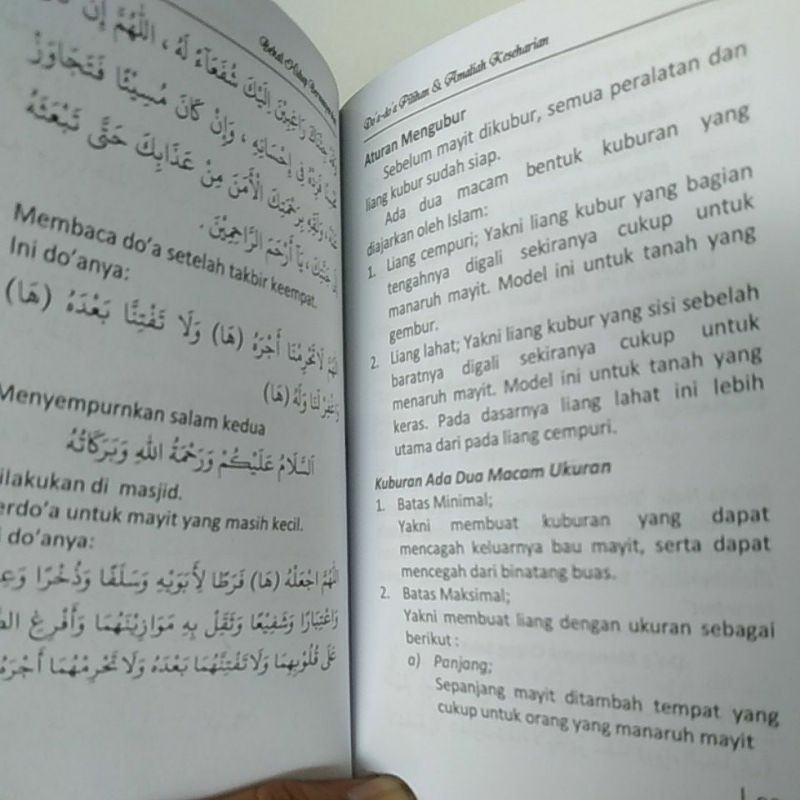 شُفَعَاءَ لَهُ ، اَللّٰهُمَّ إِنْ
فِي إِحْسَانِهِ ، وَإِنْ كَانَ مُسِيْئًا فَتَجَاوَزْ
بِرَحْمَتِكَ الْأَمْنَ مِنْ عَذَابِكَ حَتَّى تَبْعَثَهُ
يَا أَرْحَمَ الرَّاحِمِيْنَ .
Membaca do'a setelah takbir keempat.
Ini do'anya:
لَا تَحْرِمْنَا أَجْرَهُ (هَا) وَلَا تَفْتِنَّا بَعْدَهُ (هَا)
وَاغْفِرْ لَنَا وَلَهُ (هَا)
Menyempurnkan salam kedua
اَلسَّلَامُ عَلَيْكُمْ وَرَحْمَةُ اللهِ وَبَرَكَاتُهُ
ilakukan di masjid.
erdo'a untuk mayit yang masih kecil.
do'anya:
اَللّٰهُمَّ اجْعَلْهُ (هَا) فَرَطًا لِأَبَوَيْهِ وَسَلَفًا وَذُخْرًا
وَاعْتِبَارًا وَشَفِيْعًا وَثَقِّلْ بِهِ مَوَازِيْنَهُمَا وَأَفْرِغِ
عَلَى قُلُوْبِهِمَا وَلَا تَفْتِنْهُمَا بَعْدَهُ وَلَا تَحْرِمْهُمَا
Do'a-do'a Pilihan & Amaliah Keseharian
Aturan Mengubur
Sebelum mayit dikubur, semua peralatan dan
liang kubur sudah siap.
Ada dua macam bentuk kuburan yang
diajarkan oleh Islam:
1. Liang cempuri; Yakni liang kubur yang bagian
tengahnya digali sekiranya cukup untuk
manaruh mayit. Model ini untuk tanah yang
gembur.
2. Liang lahat; Yakni liang kubur yang sisi sebelah
baratnya digali sekiranya cukup untuk
menaruh mayit. Model ini untuk tanah yang
keras. Pada dasarnya liang lahat ini lebih
utama dari pada liang cempuri.
Kuburan Ada Dua Macam Ukuran
1. Batas Minimal;
Yakni membuat kuburan yang dapat
mencagah keluarnya bau mayit, serta dapat
mencegah dari binatang buas.
2. Batas Maksimal;
Yakni membuat liang dengan ukuran sebagai
berikut :
a) Panjang;
Sepanjang mayit ditambah tempat yang
cukup untuk orang yang manaruh mayit